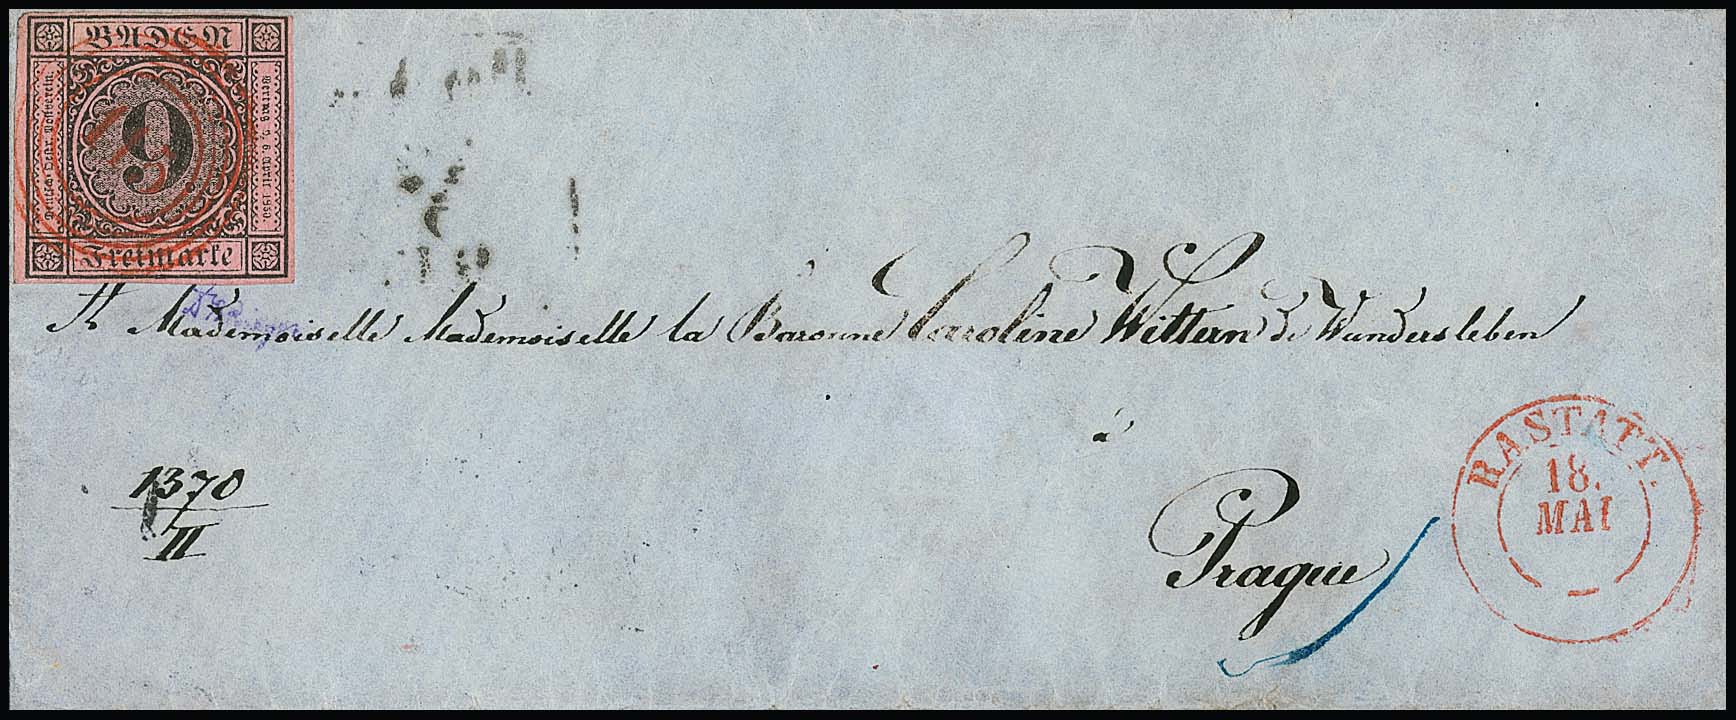 BADEN
Deutsch-Oestr. Postverein.
9
Vertrag v. 6 April 1850.
Freimarke
A Mademoiselle Mademoiselle la Baronne Caroline Wittern de Wundersleben
à
Prague
1370
II
RASTATT.
18.
MAI